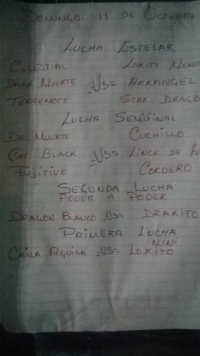 Domingo 11 de Octubre
Lucha Estelar
Celestial Lokito
Dark Muerte -Vs- Arkangel
Terremoto Star Drago
Lucha Semifinal
Dr Muerto Cuchillo
Cat Black -Vs- Lince de
Fugitivo Cordero
Segunda Lucha
Poder a Poder
Dragon Blanco -Vs- Drakito
Primera Lucha
Mini
Aguila -Vs- Lokito